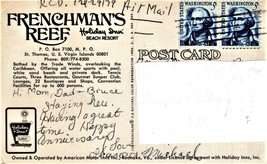 RCD. 12-29-79 Air Mail
FRENCHMAN'S
REEF Holiday Inn®
BEACH RESORT
P. O. Box 7100, M. P. O.
St. Thomas, U. S. Virgin Islands 00801
Phone: 809/774-8500
Bathed by the Trade Winds, overlooking the
Caribbean. Offering all water sports with pool,
white sand beach and private deck, Tennis
Courts, Three Restaurants, Gourmet Surger Club,
Lounges, 22 Boutiques and Shops, Conference
Facilities, 400 Rooms.
WASHINGTON 5¢
WASHINGTON 5¢
POST CARD
Hi Mom, Dad & Bruce
Staying here.
Having great
time. Happy
Anniversary
Love
Michael
Holiday Inn
Owned & Operated by American Motor Inns, Roanoke, Va., under License agreement with Holiday Inns, Inc.